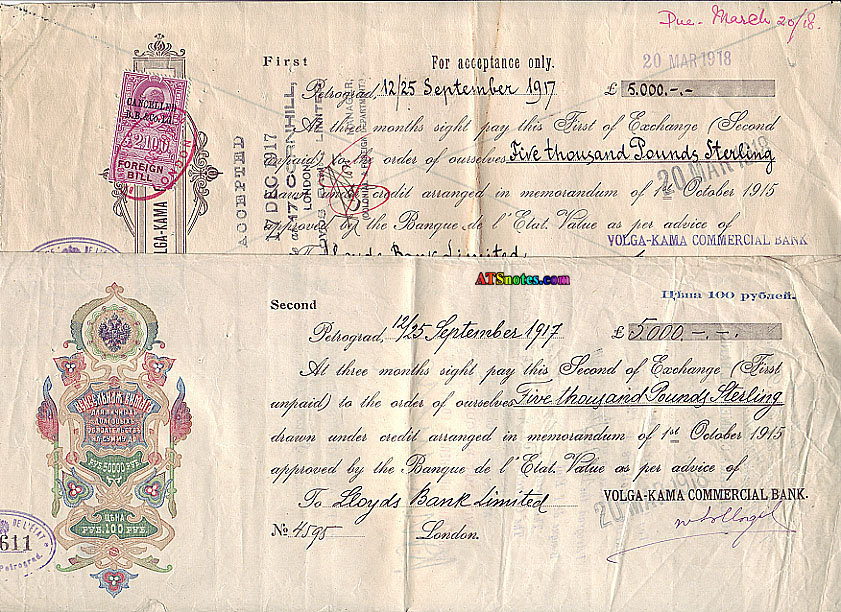 Due. March 20/18.
First
For acceptance only.
20 MAR 1918
Petrograd, 12/25 September 1917 £ 5.000.-.-
CANCELLED
FOREIGN
BILL
At three months sight pay this First of Exchange (Second
unpaid) to the order of ourselves Five thousand Pounds Sterling
20 MAR 1918
drawn under credit arranged in memorandum of 1st October 1915
approved by the Banque de l'Etat. Value as per advice of
VOLGA-KAMA COMMERCIAL BANK
To Lloyds Bank Limited,
ACCEPTED
17 DEC. 1917
CORNHILL,
LONDON
LIMITED
MANAGER,
(COLONIAL & FOREIGN DEPARTMENT)
LGA-KAMA
ATSnotes.com
Second
Цѣна 100 рублей.
Petrograd, 12/25 September 1917 £ 5000.-.-.
At three months sight pay this Second of Exchange (First
unpaid) to the order of ourselves Five thousand Pounds Sterling
drawn under credit arranged in memorandum of 1st October 1915
approved by the Banque de l'Etat. Value as per advice of
To Lloyds Bank Limited
VOLGA-KAMA COMMERCIAL BANK.
20 MAR 1918
№ 4595 London.
ВЕКСЕЛЬНАЯ БУМАГА
НА СУММУ ДО
РУБ. 50000 РУБ.
ЦѢНА
РУБ. 100 РУБ.
DE L'ETAT
611
Petrograd.